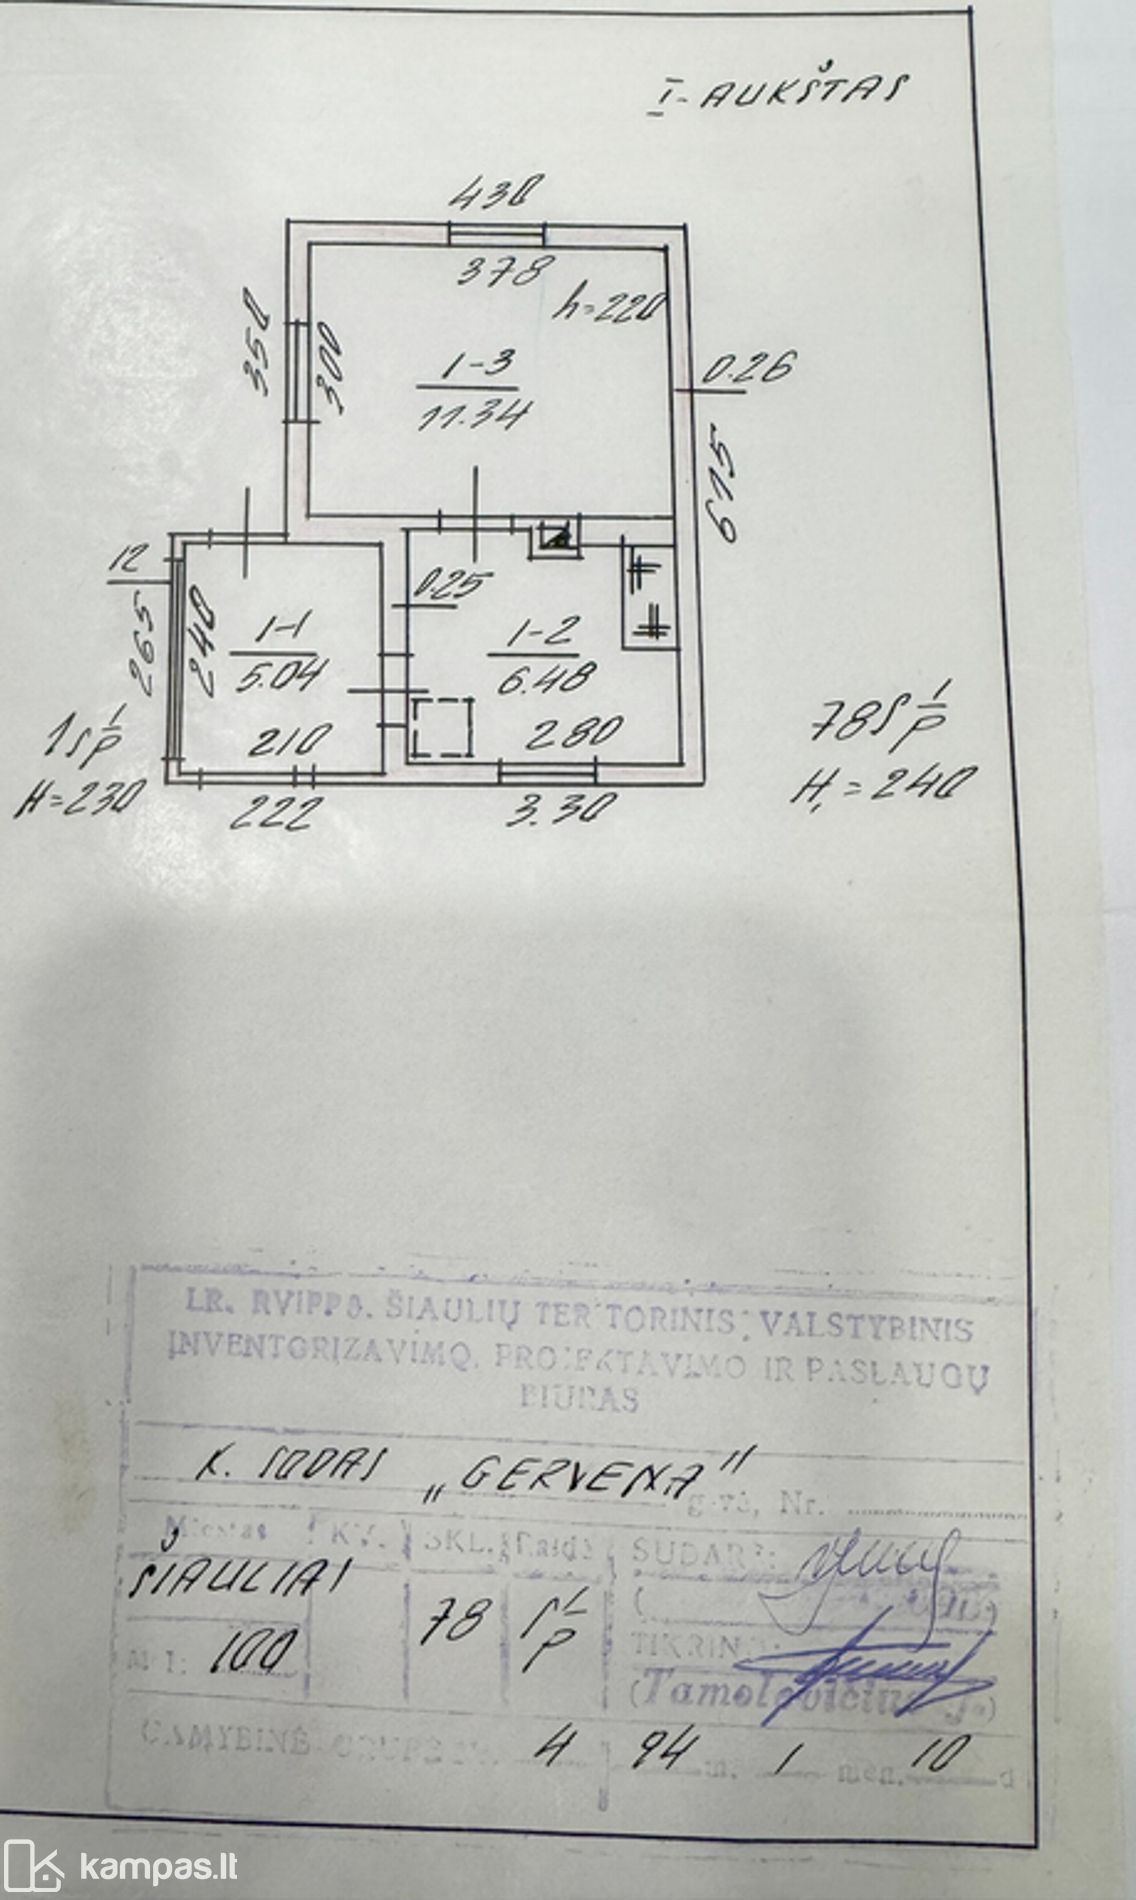 I-AUKŠTAS
430
378
h=220
350
300
1-3
11.34
0.26
615
12
265
240
0.25
1-1
5.04
1-2
6.48
210
280
1S 1/P
H=230
222
3.30
78S 1/P
H1=240
ŠIAULIŲ TERITORINIS VALSTYBINIS
INVENTORIZAVIMO, PROJEKTAVIMO IR PASLAUGŲ
BIURAS
K. SODAS „GERVENA"
g-vė, Nr.
Miestas KV. SKL. Raidė SUDARĖ:
ŠIAULIAI
78 S 1/P
M 1: 100
TIKRINO:
GAMYBINĖ GRUPĖ 4 94 m. 1 mėn. 10 d
kampas.lt